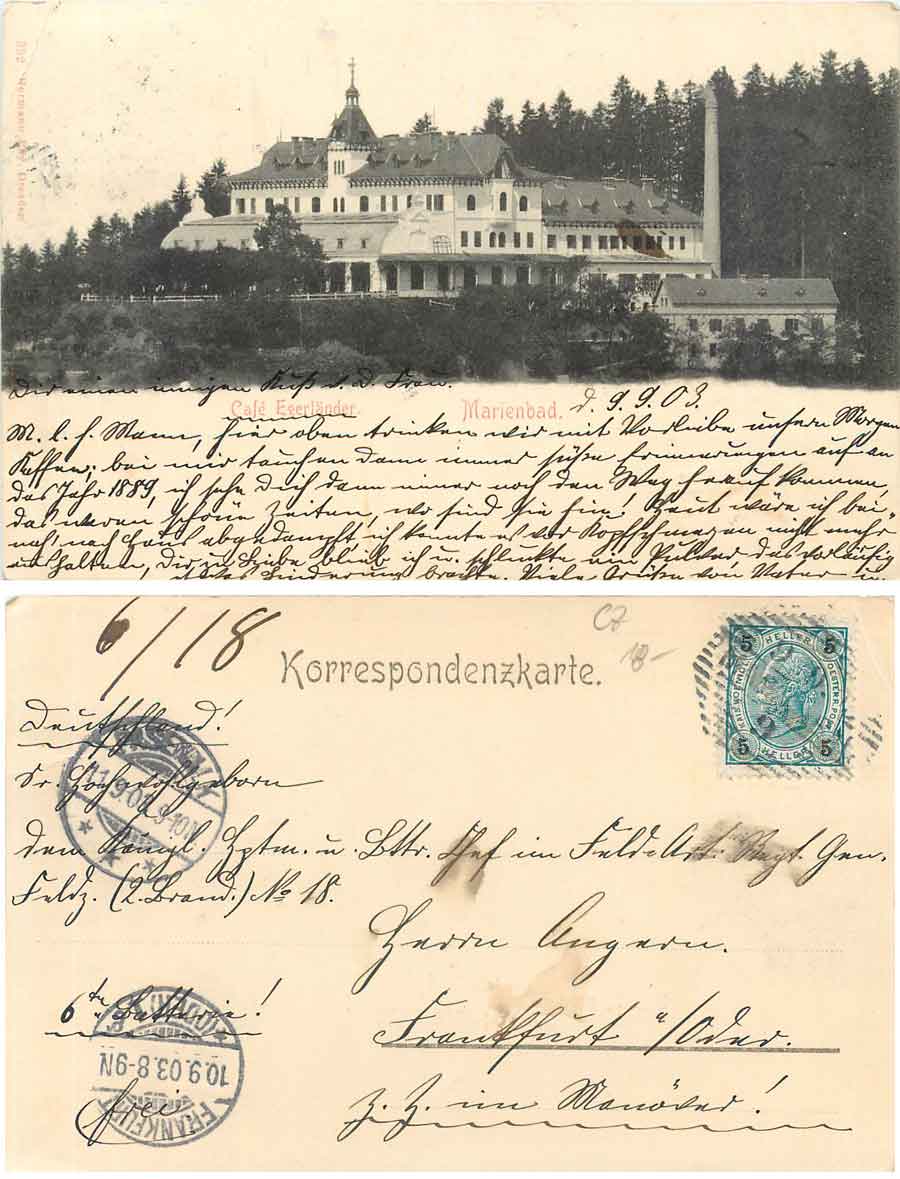 Dir einen innigen Kuß v. d. Frau.
Café Egerländer. Marienbad. d. 9.9.03.
M. l. h. Mann, hier oben trinken wir mit Vorliebe unsern Morgen
Kaffee; bei mir tauchen dann immer süße Erinnerungen auf an
das Jahr 1889, ich sehe Dich dann immer noch den Weg herauf kommen,
das waren schöne Zeiten, wo sind sie hin! Heut wäre ich bei-
nah nach Haus abgedampft, ich konnte es vor Kopfschmerzen nicht mehr
aushalten, Dir zu Liebe blieb ich u. schluckte ein Pulver das vorläufig
etwas Linderung brachte. Viele Grüße von Vater u.
6/18
C7
18-
Korrespondenzkarte.
5 HELLER 5
KAIS. KOENIGL. OESTERR. POST
5 HELLER 5
Deutschland!
Sr. Hochwohlgeborn
dem Königl. Hptm. u. Bttr. Chef im Feld-Art. Regt. Gen.
Feldz. (2. Brand.) No 18.
Herrn Angern.
6te Batterie!
Frankfurt a/Oder.
FRANKFURT (ODER)
10.9.03.8-9N
frei
z. Z. im Manöver!